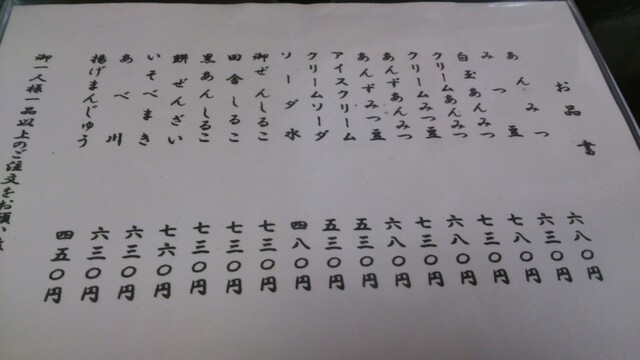 お品書
あんみつ 六八〇円
みつ豆 六三〇円
白玉あんみつ 七八〇円
クリームあんみつ 七三〇円
クリームみつ豆 六八〇円
あんずあんみつ 七三〇円
あんずみつ豆 六八〇円
アイスクリーム 五三〇円
クリームソーダ 五三〇円
ソーダ水 四八〇円
御ぜんしるこ 七三〇円
田舎しるこ 七三〇円
黒あんしるこ 七三〇円
餅ぜんざい 七六〇円
いそべまき 六三〇円
あべ川 六三〇円
揚げまんじゅう 四五〇円
御一人様一品以上のご注文をお願い